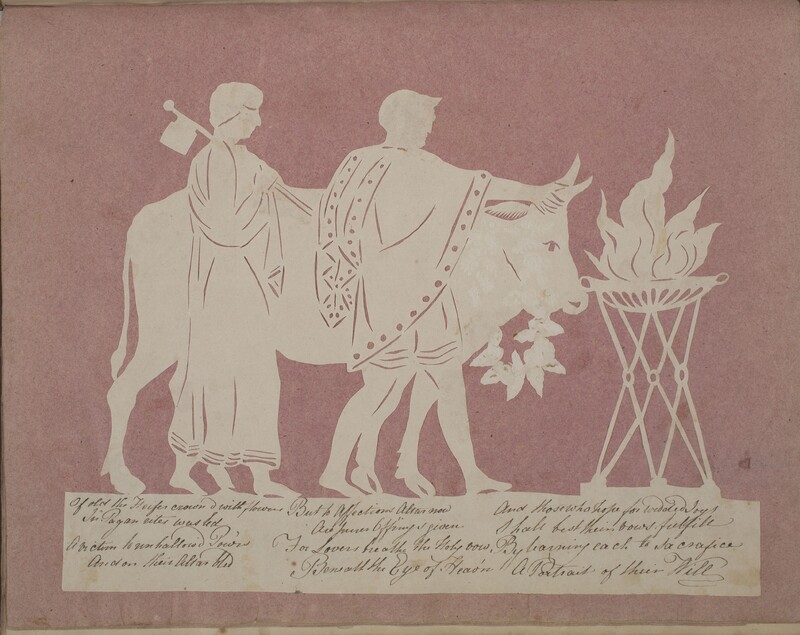 Of old the Heifer crown'd with flowers
In Pagan rites was led
A victim to unhallow'd Pow'rs
And on their Altar bled
But to Affections Altar now
Are purer Off'rings given
For Lovers breathe the Holy vow
Beneath the Eye of Heav'n
And those who hope for wedded Joys
Shall best their vows fulfill
By learning each to Sacrafice
A Portrait of their Will